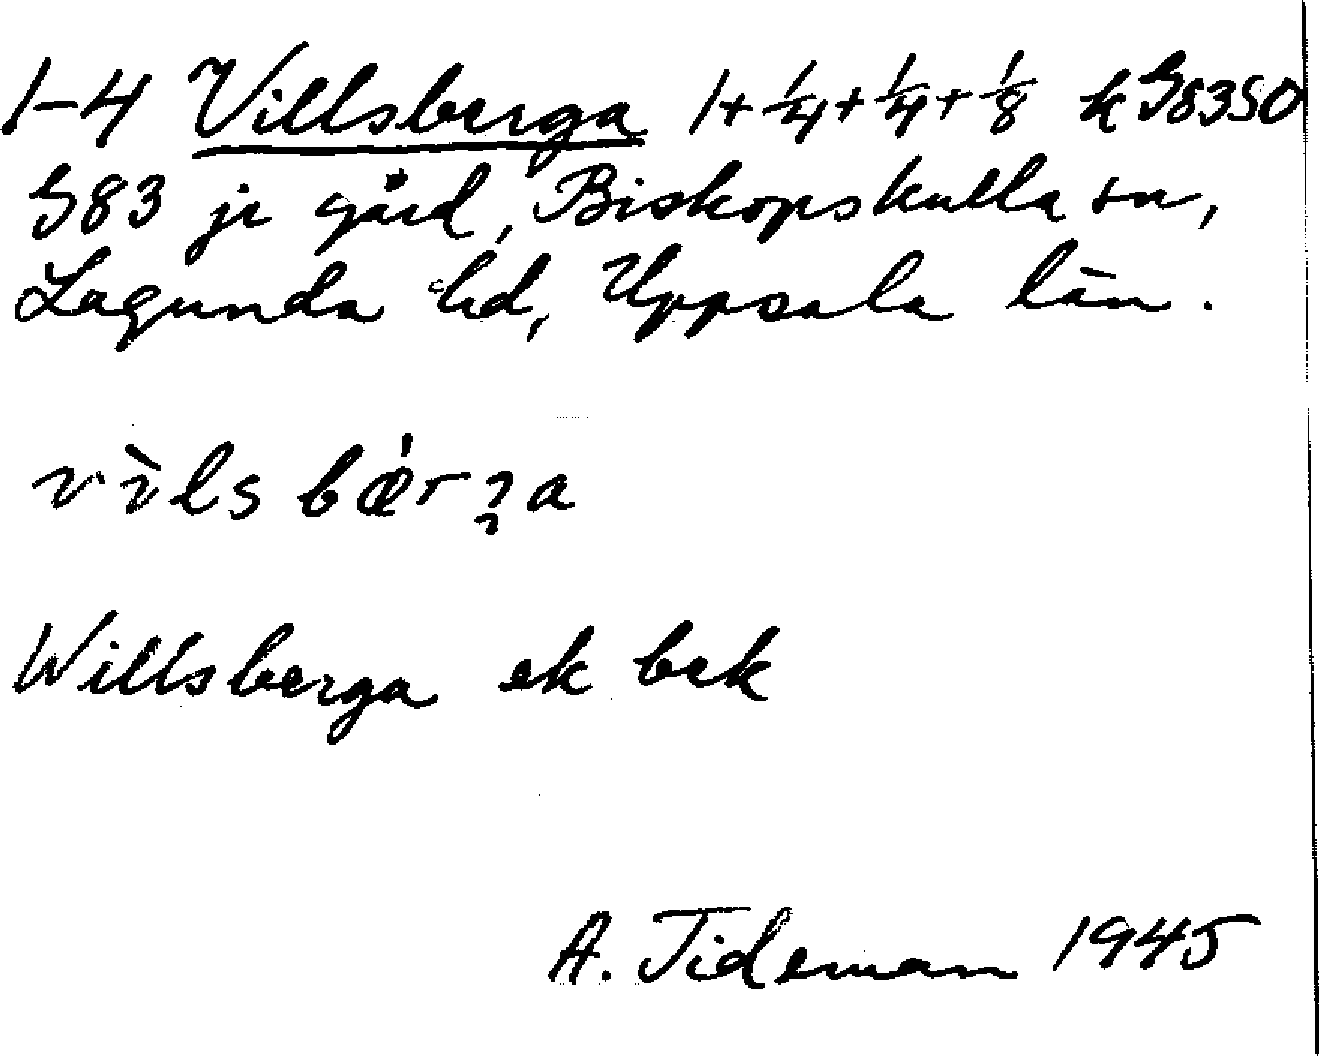 1-4 Villsberga 1+¼+¼+⅛ k G8350
G83 je gård, Biskopskulla sn,
Lagunda hd, Uppsala län.
vìlsbæ̍r
Willsberga ek bek
A. Tideman 1945